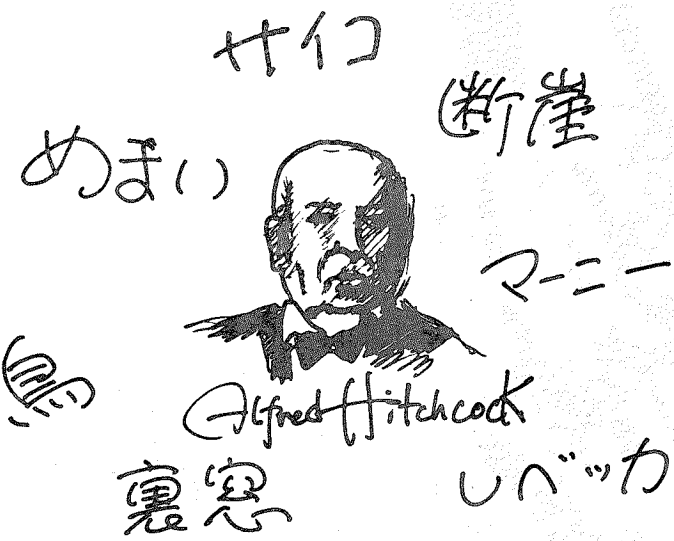 サイコ
断崖
めまい
マーニー
鳥
Alfred Hitchcock
レベッカ
裏窓